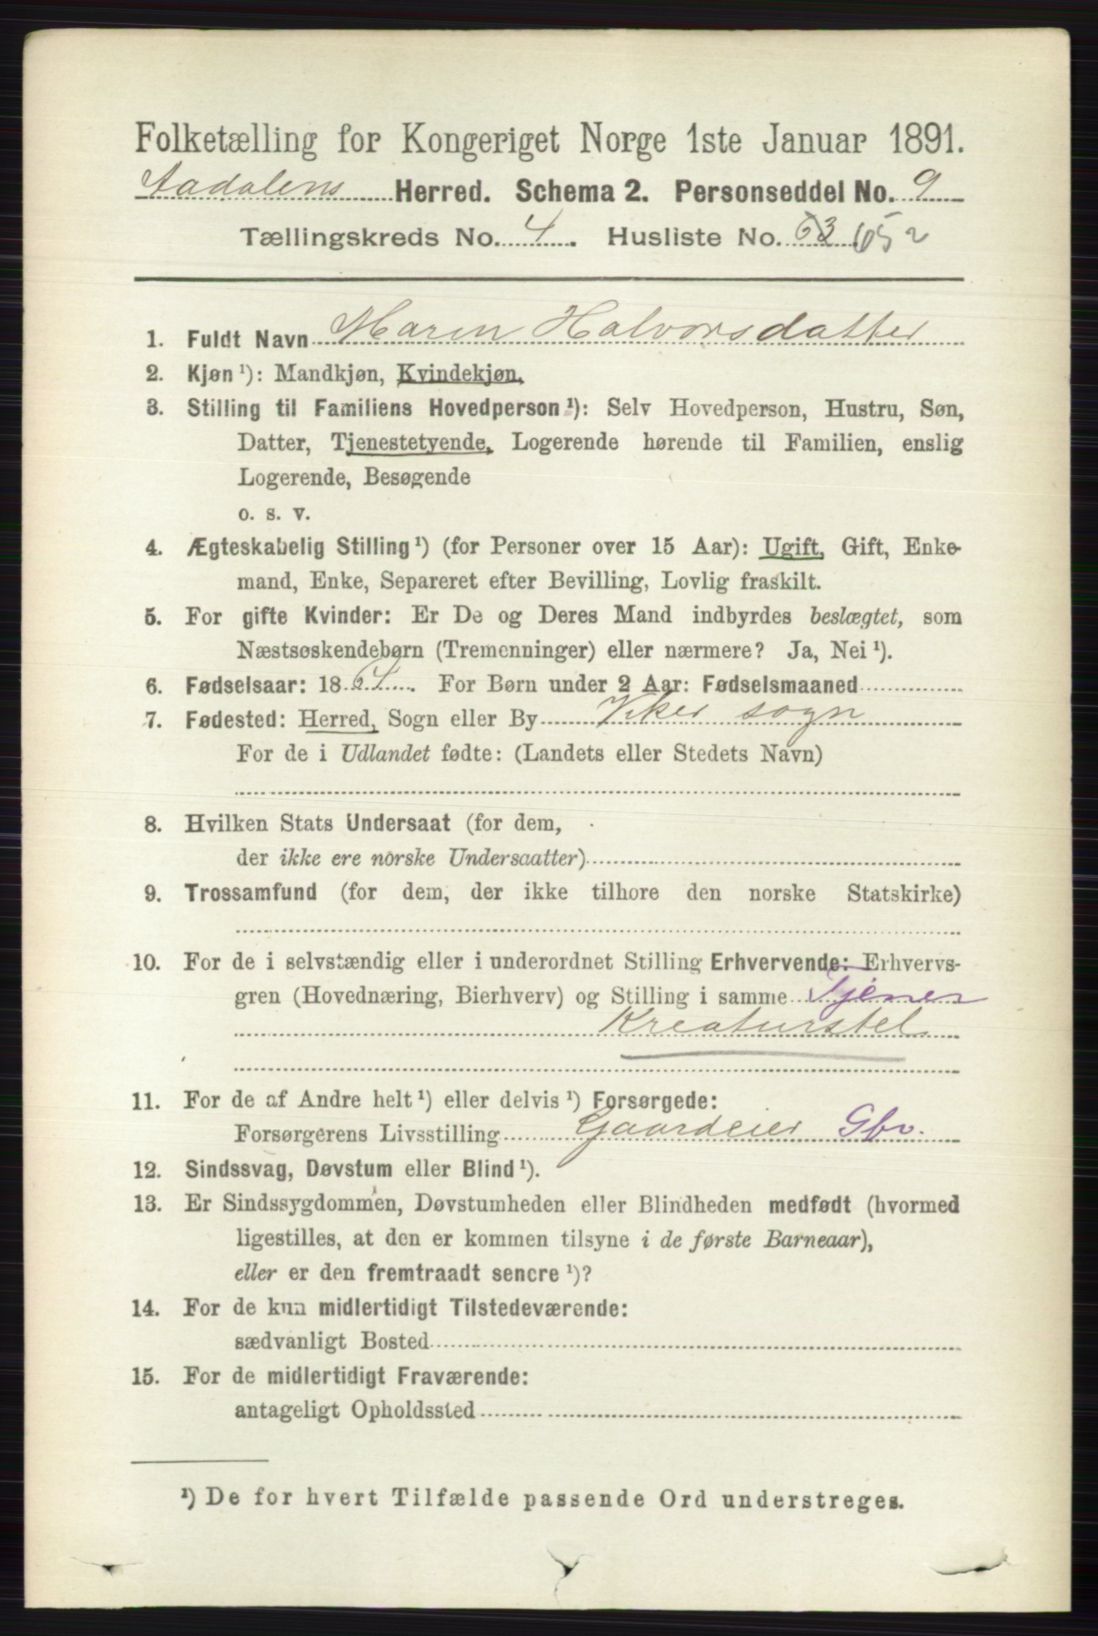 Folketælling for Kongeriget Norge 1ste Januar 1891.
Aadalens Herred. Schema 2. Personseddel No. 9
Tællingskreds No. 4. Husliste No. 63 65
1. Fuldt Navn Maren Halvorsdatter
2. Kjøn ¹): Mandkjøn, Kvindekjøn.
3. Stilling til Familiens Hovedperson ¹): Selv Hovedperson, Hustru, Søn,
Datter, Tjenestetyende, Logerende hørende til Familien, enslig
Logerende, Besøgende
o. s. v.
4. Ægteskabelig Stilling ¹) (for Personer over 15 Aar): Ugift, Gift, Enke-
mand, Enke, Separeret efter Bevilling, Lovlig fraskilt.
5. For gifte Kvinder: Er De og Deres Mand indbyrdes beslægtet, som
Næstsøskendebørn (Tremenninger) eller nærmere? Ja, Nei ¹).
6. Fødselsaar: 1864. For Børn under 2 Aar: Fødselsmaaned
7. Fødested: Herred, Sogn eller By Viker sogn
For de i Udlandet fødte: (Landets eller Stedets Navn)
8. Hvilken Stats Undersaat (for dem,
der ikke ere norske Undersaatter)
9. Trossamfund (for dem, der ikke tilhøre den norske Statskirke)
10. For de i selvstændig eller i underordnet Stilling Erhvervende: Erhvervs-
gren (Hovednæring, Bierhverv) og Stilling i samme Tjener
Kreaturstel
11. For de af Andre helt ¹) eller delvis ¹) Forsørgede:
Forsørgerens Livsstilling Gaardeier Gbr.
12. Sindssvag, Døvstum eller Blind ¹).
13. Er Sindssygdommen, Døvstumheden eller Blindheden medfødt (hvormed
ligestilles, at den er kommen tilsyne i de første Barneaar),
eller er den fremtraadt senere ¹)?
14. For de kun midlertidigt Tilstedeværende:
sædvanligt Bosted
15. For de midlertidigt Fraværende:
antageligt Opholdssted
¹) De for hvert Tilfælde passende Ord understreges.